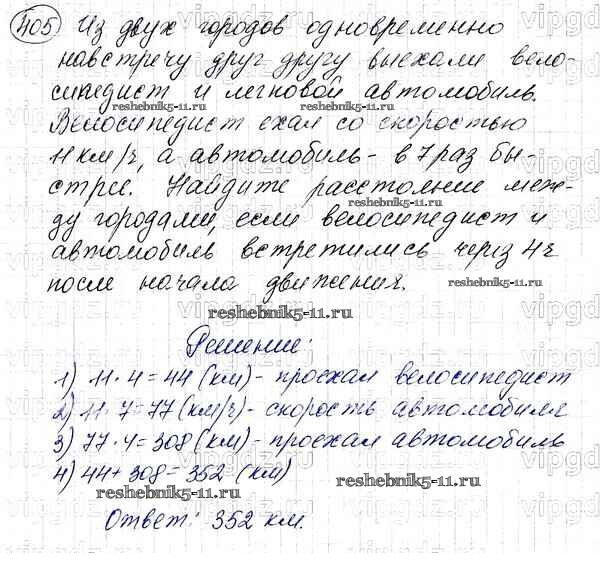 405 Из двух городов одновременно
навстречу друг другу выехали вело-
сипедист и легковой автомобиль.
reshebnik5-11.ru reshebnik5-11.ru
Велосипедист ехал со скоростью
11 км/ч, а автомобиль - в 7 раз бы-
стрее. Найдите расстояние меж-
reshebnik5-11.ru
ду городами, если велосипедист и
автомобиль встретились через 4ч
после начала движения.
reshebnik5-11.ru
reshebnik5-11.ru
Решение:
1) 11 · 4 = 44 (км) - проехал велосипедист
2) 11 · 7 = 77 (км/ч) - скорость автомобиля
3) 77 · 4 = 308 (км) - проехал автомобиль
4) 44 + 308 = 352 (км)
reshebnik5-11.ru reshebnik5-11.ru
Ответ: 352 км.